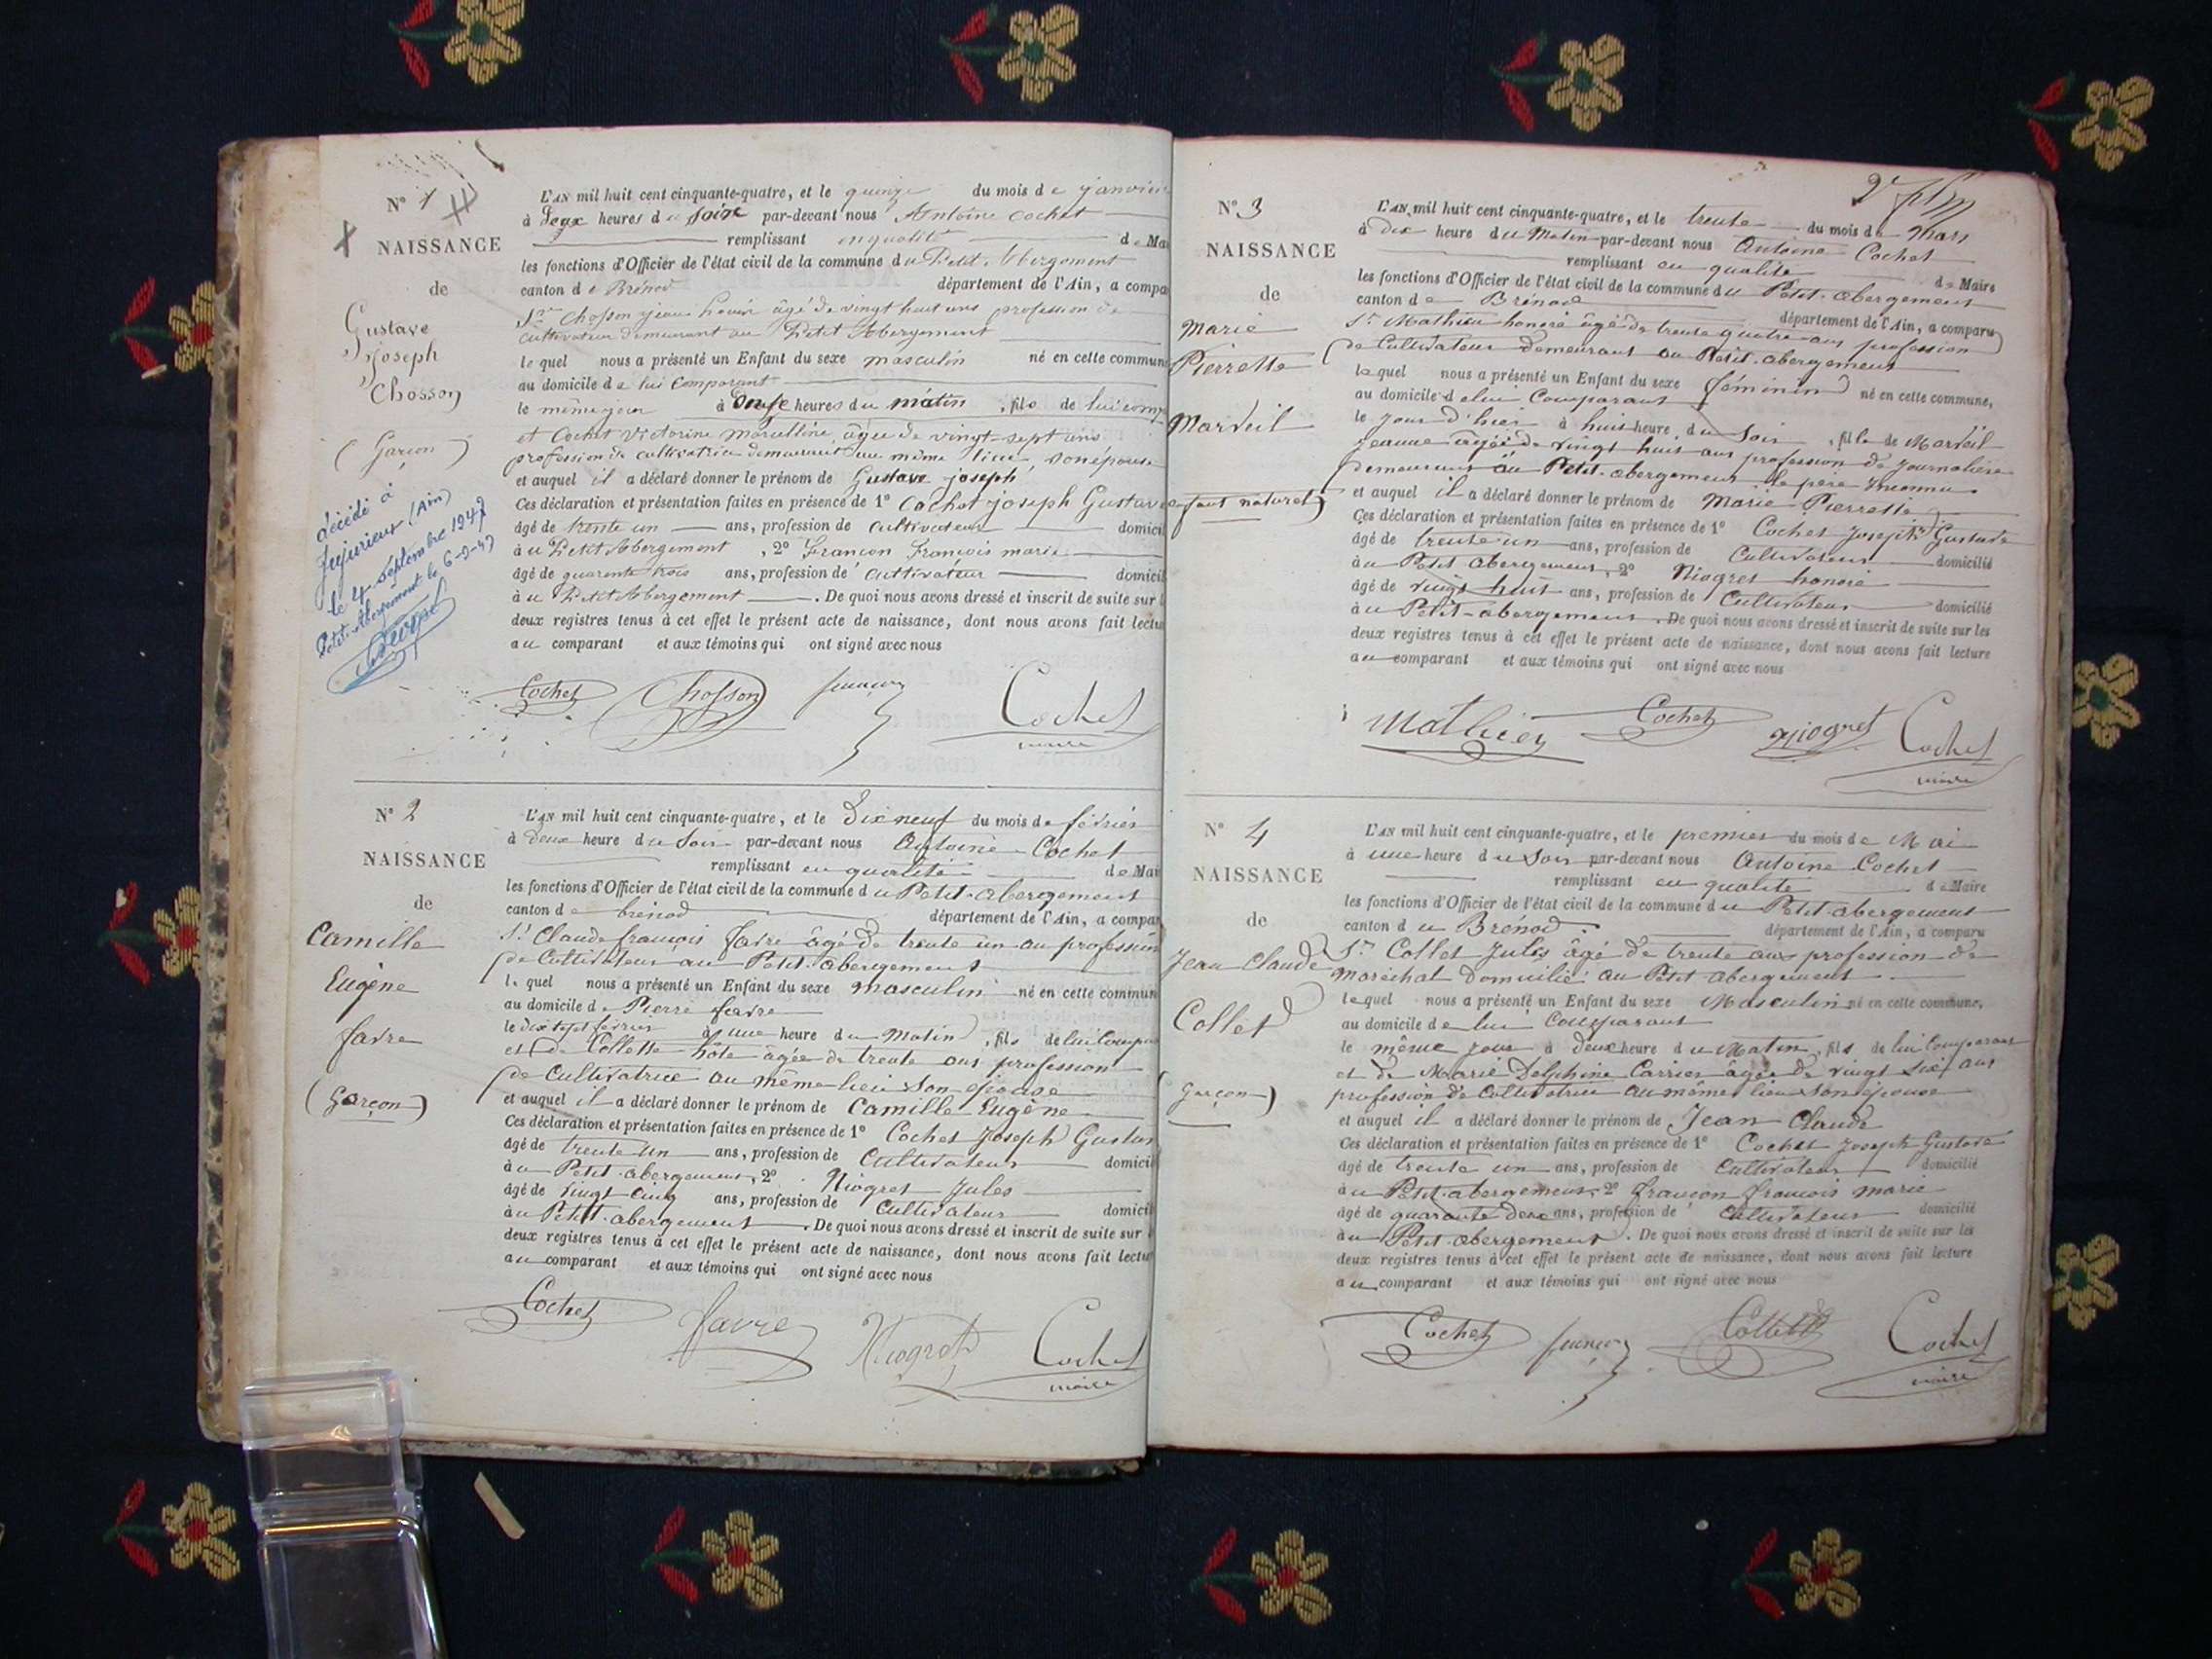 N° 1
NAISSANCE
de
Gustave
joseph
Chosson
(Garçon)
décédé à
Jujurieux (Ain)
le 4 septembre 1947
Petit-Abergement le 6-9-47
L'AN mil huit cent cinquante-quatre, et le quinze du mois de janvier
à deux heures du soir par-devant nous Antoine Cochet
remplissant en qualité de Ma
les fonctions d'Officier de l'état civil de la commune du Petit-Abergement
canton de Brénod département de l'Ain, a compa
Sr Chosson jean honoré âgé de vingt huit ans profession de
cultivateur demeurant au Petit Abergement
lequel nous a présenté un Enfant du sexe masculin né en cette commune
au domicile de lui comparant
le même jour à onze heures du matin, fils de lui comp
et Cochet victorine marcelline âgée de vingt-sept ans
profession de cultivatrice demeurant au même lieu, son épouse
et auquel il a déclaré donner le prénom de Gustave joseph
Ces déclaration et présentation faites en présence de 1° Cochet joseph Gustave
âgé de trente un ans, profession de cultivateur domicil
à u Petit Abergement, 2° Françon François marie
âgé de quarante trois ans, profession de cultivateur domicil
à u Petit Abergement. De quoi nous avons dressé et inscrit de suite sur l
deux registres tenus à cet effet le présent acte de naissance, dont nous avons fait lectu
au comparant et aux témoins qui ont signé avec nous
Cochet Chosson françon Cochet
maire
N° 2
NAISSANCE
de
Camille
Eugène
favre
(Garçon)
L'AN mil huit cent cinquante-quatre, et le dix neuf du mois de février
à deux heure du Soir par-devant nous Antoine Cochet
remplissant en qualité de Mai
les fonctions d'Officier de l'état civil de la commune du Petit-abergement
canton de brénod département de l'Ain, a compar
Sr Claude françois favre âgé de trente un an profession
de Cultivateur au Petit-abergement
lequel nous a présenté un Enfant du sexe masculin né en cette commun
au domicile de Pierre favre
le dix sept février à une heure du Matin, fils de lui Compa
et de Collette hôte âgée de trente ans profession
de Cultivatrice au même lieu son épouse
et auquel il a déclaré donner le prénom de Camille Eugène
Ces déclaration et présentation faites en présence de 1° Cochet Joseph Gustav
âgé de trente un ans, profession de Cultivateur domicil
à u Petit-abergement, 2° Niogret Jules
âgé de vingt cinq ans, profession de Cultivateur domici
à u Petit-abergement. De quoi nous avons dressé et inscrit de suite sur
deux registres tenus à cet effet le présent acte de naissance, dont nous avons fait lectu
au comparant et aux témoins qui ont signé avec nous
Cochet favre Niogret Cochet
maire
N° 3
NAISSANCE
de
Marie
Pierrette
Marveil
enfant naturel)
L'AN mil huit cent cinquante-quatre, et le trente du mois de Mars
à dix heure du Matin par-devant nous Antoine Cochet
remplissant en qualité de Maire
les fonctions d'Officier de l'état civil de la commune du Petit-abergement
canton de Brénod département de l'Ain, a comparu
Sr Mathieu honoré âgé de trente quatre ans profession
de Cultivateur demeurant au Petit-abergement
lequel nous a présenté un Enfant du sexe féminin né en cette commune,
au domicile de lui Comparant
le jour d'hier à huit heure du Soir, fille de Marveil
Jeanne âgée de vingt huit ans profession de journalière
demeurant au Petit-abergement le père inconnu
et auquel il a déclaré donner le prénom de Marie Pierrette
Ces déclaration et présentation faites en présence de 1° Cochet Joseph Gustave
âgé de trente un ans, profession de Cultivateur domicilié
à u Petit abergement, 2° Niogret honoré
âgé de vingt huit ans, profession de Cultivateur domicilié
à u Petit-abergement. De quoi nous avons dressé et inscrit de suite sur les
deux registres tenus à cet effet le présent acte de naissance, dont nous avons fait lecture
au comparant et aux témoins qui ont signé avec nous
Mathieu Cochet Niogret Cochet
maire
N° 4
NAISSANCE
de
Jean Claude
Collet
Garçon)
L'AN mil huit cent cinquante-quatre, et le premier du mois de Mai
à une heure du Soir par-devant nous Antoine Cochet
remplissant en qualité de Maire
les fonctions d'Officier de l'état civil de la commune du Petit-abergement
canton du Brénod département de l'Ain, a comparu
Sr Collet Jules âgé de trente ans profession de
maréchal domicilié au Petit abergement
lequel nous a présenté un Enfant du sexe Masculin né en cette commune,
au domicile de lui Comparant
le même jour à deux heure du Matin, fils de lui Comparant
et de Marie Delphine Carrier âgée de vingt six ans
profession de Cultivatrice au même lieu son épouse
et auquel il a déclaré donner le prénom de Jean Claude
Ces déclaration et présentation faites en présence de 1° Cochet Joseph Gustave
âgé de trente un ans, profession de Cultivateur domicilié
à u Petit-abergement, 2° françon françois marie
âgé de quarante deux ans, profession de Cultivateur domicilié
à u Petit-abergement. De quoi nous avons dressé et inscrit de suite sur les
deux registres tenus à cet effet le présent acte de naissance, dont nous avons fait lecture
au comparant et aux témoins qui ont signé avec nous
Cochet françon Collet Cochet
maire